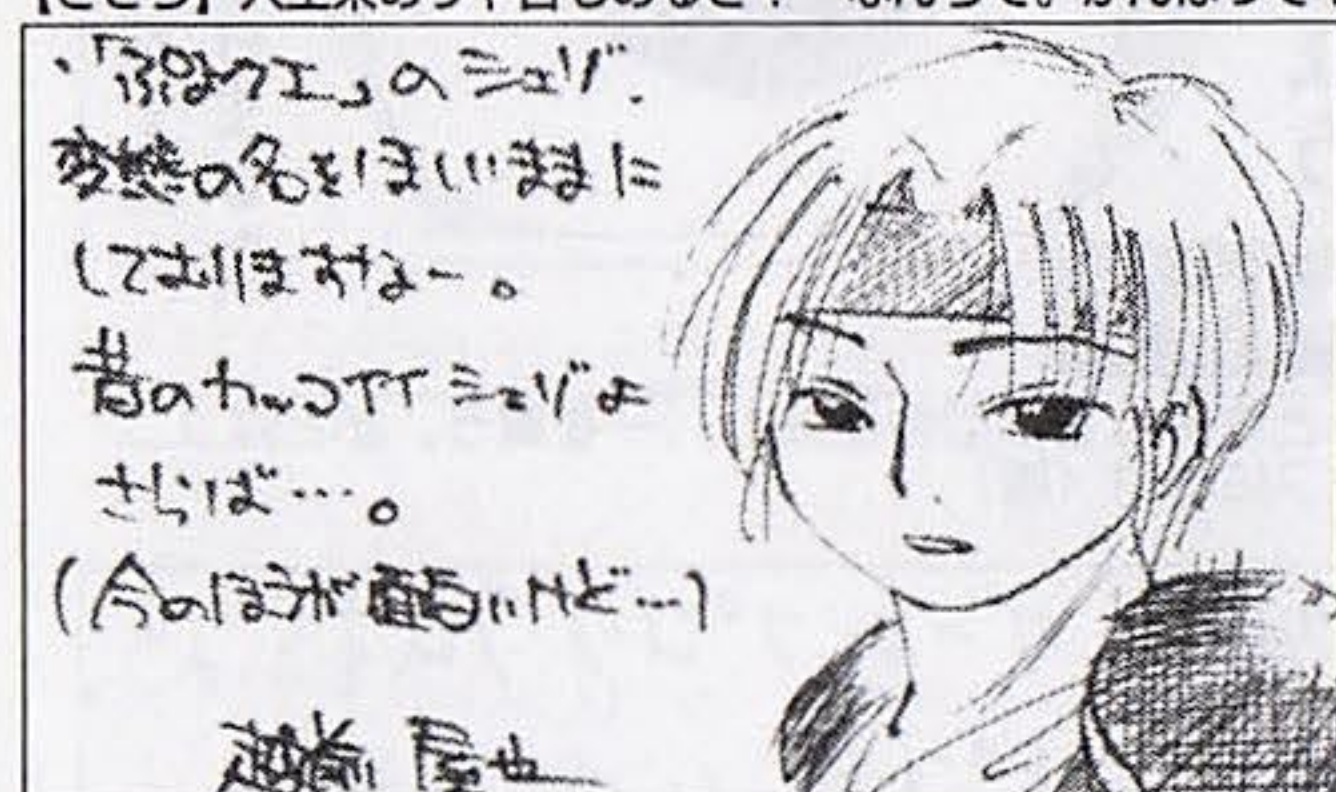 ・「ぷよクエ」のシェゾ。
変態の名をほしいままに
しておりますなー。
昔のカッコイイシェゾよ
さらば…。
(今のほうが面白いけど…)
越前 屋也